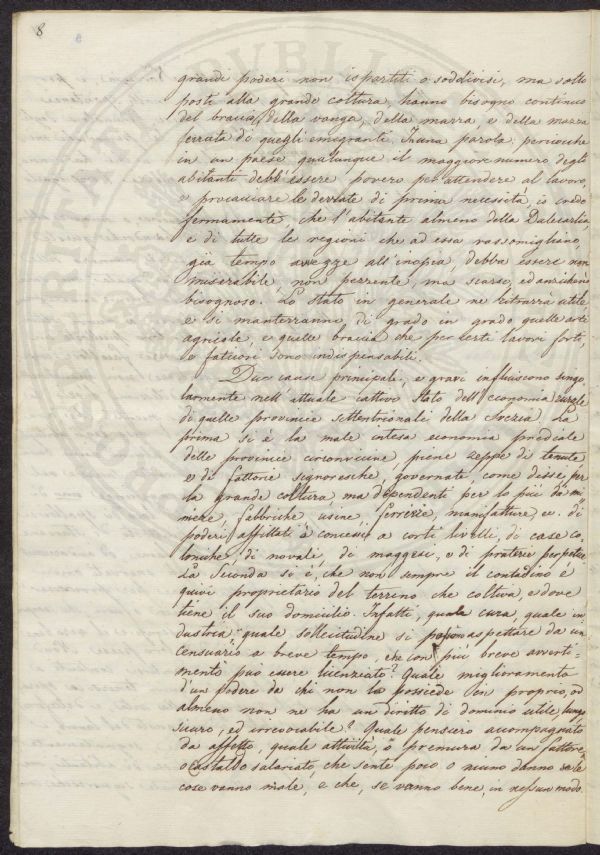 8
grandi poderi non ispartiti o soddivisi, ma sotto
posti alla grande coltura, hanno bisogno continuo
del braccio, della vanga, della marra, e della mazza
ferrata di quegli emigranti. In una parola: perciocche
in un paese qualunque il maggiore numero degli
abitanti debb'essere povero per attendere al lavoro,
e procacciare le derrate di prima necessità, io credo
fermamente, che l'abitante almeno della Dalecarlia,
e di tutte le regioni che ad essa rassomigliano,
già tempo avezze all'inopia, debba essere non
miserabile, non pezzente, ma scarso, ed anzichenò
bisognoso. Lo stato in generale ne ritrarrà utile
e si manterranno di grado in grado quelle arti
agricole, e quelle braccia che per certi lavori forti,
o faticosi sono indispensabili.
Due cause principale, e gravi influiscono singo
larmente nell'attuale cattivo stato dell'economia rurale
di quelle provincie settentrionali della Svezia. La
prima si è la male intesa economia prediale
delle provincie circonvicine, piene zeppe di tenute
e di fattorie signoresche, governate, come dissi, per
la grande coltura, ma dependenti per lo più da mi
niere, fabbriche, usine, ferriere, manifatture, e di
poderi affittati o concessi a corti livelli, di case co
loniche, di novali, di maggesi, e di praterie perpetue.
La seconda si è, che non sempre il contadino è
quivi proprietario del terreno che coltiva, e dove
tiene il suo domicilio. Infatti, quale cura, quale in
dustria, quale sollecitudine si possono aspettare da un
censuario a breve tempo, che con più breve avverti-
mento può essere licenziato? Quale miglioramento
d'un podere da chi non lo possiede in proprio, o
almeno non ne ha un diritto di dominio utile, lungo
sicuro, ed irrevocabile? Quale pensiero accompagnato
da affetto, quale attività, o premura da un fattore,
o castaldo salariato, che sente poco o niuno danno se le
cose vanno male, e che, se vanno bene, in nessun modo